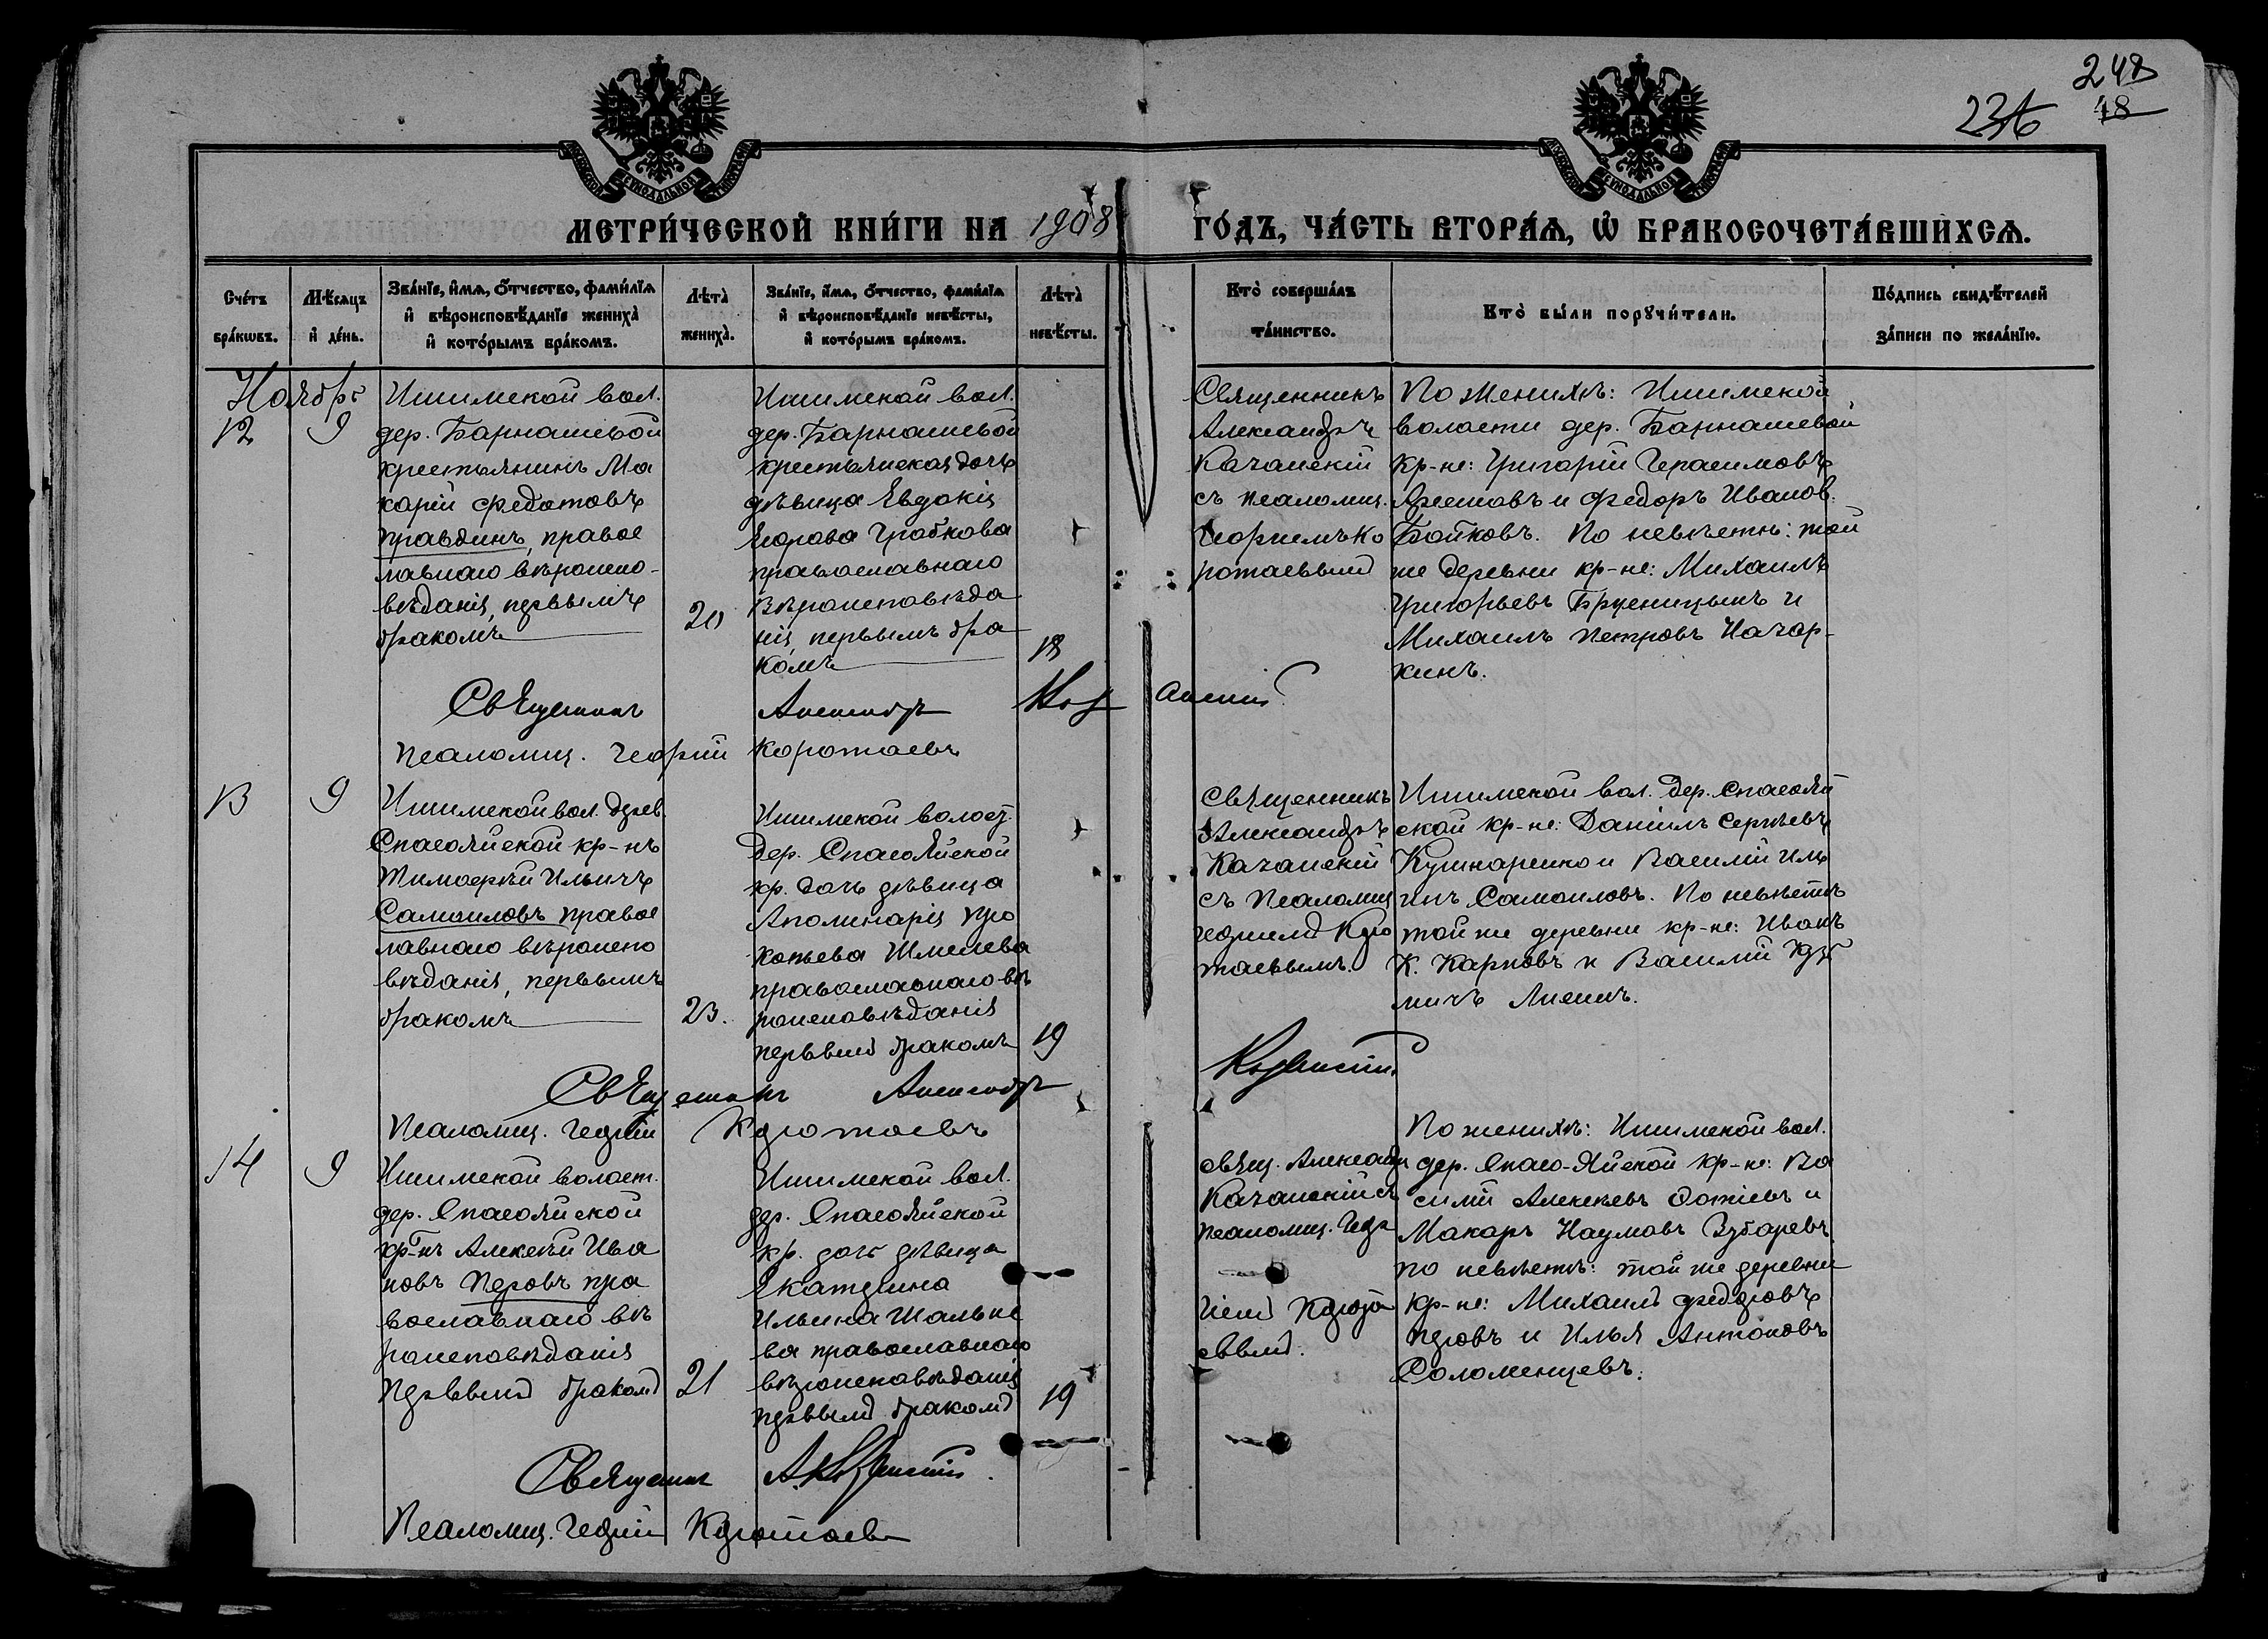 248
236 48
МЕТРИ́ЧЕСКОЙ КНИ́ГИ НА 1908 ГО́ДЪ, ЧА́СТЬ ВТОРА́Ѧ, Ѿ БРАКОСОЧЕТА́ВШИХСѦ.
Сче́тъ бра́кѡвъ.
Мѣ́сяцъ и҆ де́нь.
Зва́нїе, и҆́мѧ, ѻ҆́тчество, фами́лїѧ
и҆ вѣроисповѣ́данїе жениха̀
и҆ кото́рымъ бра́комъ.
Лѣта̀ жениха̀.
Зва́нїе, и҆́мѧ, ѻ҆́тчество, фами́лїѧ
и҆ вѣроисповѣ́данїе невѣ́сты,
и҆ кото́рымъ бра́комъ.
Лѣта̀ невѣ́сты.
Кто̀ соверша́лъ
та́инство.
Кто̀ бы́ли порꙋчи́тели.
По́дпись свидѣ́телей
за́писи по жела́нїю.
Ноябрь
12
9
Ишимской вол.
дер. Барнашевой
крестьянинъ Ма
карій Федотовъ
Правдинъ, правос
лавнаго вѣроиспо-
вѣданія, первымъ
бракомъ
20
Ишимской вол.
дер. Барнашевой
крестьянская дочь
дѣвица Евдокія
Егорова Грабкова
православнаго
вѣроисповѣда
нія, первымъ бра
комъ
18
Священникъ
Александръ
Качанскій
съ псаломщ.
Георгіемъ Ко
ротаевымъ
По женихѣ: Ишимской
волости дер. Барнашевой
кр-не: Григорій Герасимовъ
и Федоръ Иванов.
Бойковъ. По невѣстѣ: той
же деревни кр-не: Михаилъ
Григорьевъ Брусницынъ и
Михаилъ Петровъ Начар-
кинъ.
Священникъ Александръ Качанскій
Псаломщ. Георгій Коротаевъ
13
9
Ишимской вол. дерев.
Спасояйской кр-нъ
Тимофей Ильичъ
Самоиловъ правос
лавнаго вѣроиспо
вѣданія, первымъ
бракомъ
23.
Ишимской волост.
дер. Спасояйской
кр. дочь дѣвица
Аполинарія Про
копьева Шмелева
православнаго вѣ
роисповѣданія
первымъ бракомъ
19
Священникъ
Александръ
Качанскій
съ Псаломщ
Георгіемъ Коро
таевымъ.
Ишимской вол. дер. Спасояй
ской кр-не: Даніилъ Сергѣевъ
Кушнаренко и Василій Иль
инъ Самоиловъ. По невѣстѣ
той же деревни кр-не: Иванъ
К. Карповъ и Василій Кузь
мичъ
Священникъ Александръ Качанскій
Псаломщ. Георгій Коротаевъ
14
9
Ишимской волост.
дер. Спасояйской
кр-нъ Алексѣй Ива
новъ Перовъ пра
вославнаго вѣ
роисповѣданія
первымъ бракомъ
21
Ишимской вол.
дер. Спасояйской
кр. дочь дѣвица
Екатерина
Ильина Шальне
ва православнаго
вѣроисповѣданія
первымъ бракомъ
19
свящ. Александръ
Качанскій съ
псаломщ. Геор
гіемъ Корота
евымъ.
По женихѣ: Ишимской вол.
дер. Спасо-Яйской кр-не: Ва
силій Алексѣевъ Фотіевъ и
Макаръ Наумовъ Зубаревъ
по невѣстѣ: той же деревни
кр-не: Михаилъ Федоровъ
Перовъ и Илья Антоновъ
Соломенцевъ.
Священникъ А. Качанскій.
Псаломщ. Георгій Коротаевъ